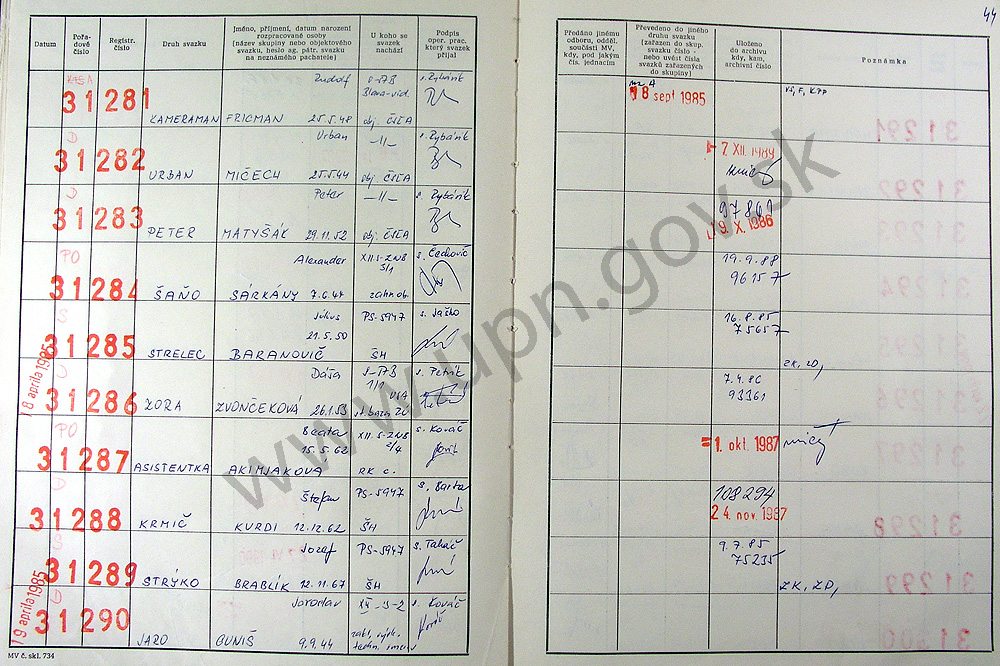 44
Datum
Pořa-
dové
číslo
Registr.
číslo
Druh svazku
Jméno, příjmení, datum narození
rozpracované osoby
(název skupiny nebo objektového
svazku, heslo ag. pátr. svazku
na neznámého pachatele)
U koho se
svazek
nachází
Podpis
oper. prac.
který svazek
přijal
Předáno jinému
odboru, odděl.
součásti MV,
kdy, pod jakým
čís. jednacím
Převedeno do jiného
druhu svazku
(zařazen do skup.
svazku číslo -
nebo uvést čísla
svazků zařazených
do skupiny)
Uloženo
do archivu
kdy, kam,
archivní číslo
Poznámka
Rudolf s. Rybárik
31281 18 sept 1985
KAMERAMAN FRICMAN 25.5.48 obj. ČSĽA
D Urban -11- s. Rybárik
31282 7. XII. 1989
URBAN MIČECH 25.5.44 obj. ČSĽA
D Peter -11- s. Rybárik
31283 97861
PETER MATYŠÁK 29.11.52 obj. ČSĽA 9. X. 1986
PO Alexander XII.S-ZNB s. Čechovič 19.9.88
31284 96157
ŠAŇO SÁRKÁNY 7.6.47
S Július PS-5947 s. Jaško 16.8.85
31285 21.5.50 75657
STRELEC BARANOVIČ ŠH ZK, ZD,
18 apríla 1985
Dáša s. Petrík 7.4.86
31286 93361
ZORA ZVONČEKOVÁ 26.1.53
PO Beata XII.S-ZNB s. Kováč
31287 15.5.62 1. okt. 1987
ASISTENTKA AKIMJAKOVÁ RK c.
D Štefan PS-5947 s. Barta 108294
31288 24. nov. 1987
KRMIČ KURDI 12.12.62 ŠH
S Jozef PS-5947 s. Takáč 9.7.85
31289 75235
STRÝKO BRABLÍK 12.11.67 ŠH ZK, ZD,
19 apríla 1985
D Jaroslav s. Kováč
31290
JARO GUNIŠ 9.9.44
MV č. skl. 734
www.upn.gov.sk